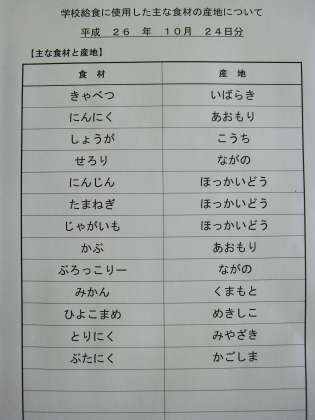 学校給食に使用した主な食材の産地について
平成 26 年 10月 24日分
【主な食材と産地】
食 材 産 地
きゃべつ いばらき
にんにく あおもり
しょうが こうち
せろり ながの
にんじん ほっかいどう
たまねぎ ほっかいどう
じゃがいも ほっかいどう
かぶ あおもり
ぶろっこりー ながの
みかん くまもと
ひよこまめ めきしこ
とりにく みやざき
ぶたにく かごしま